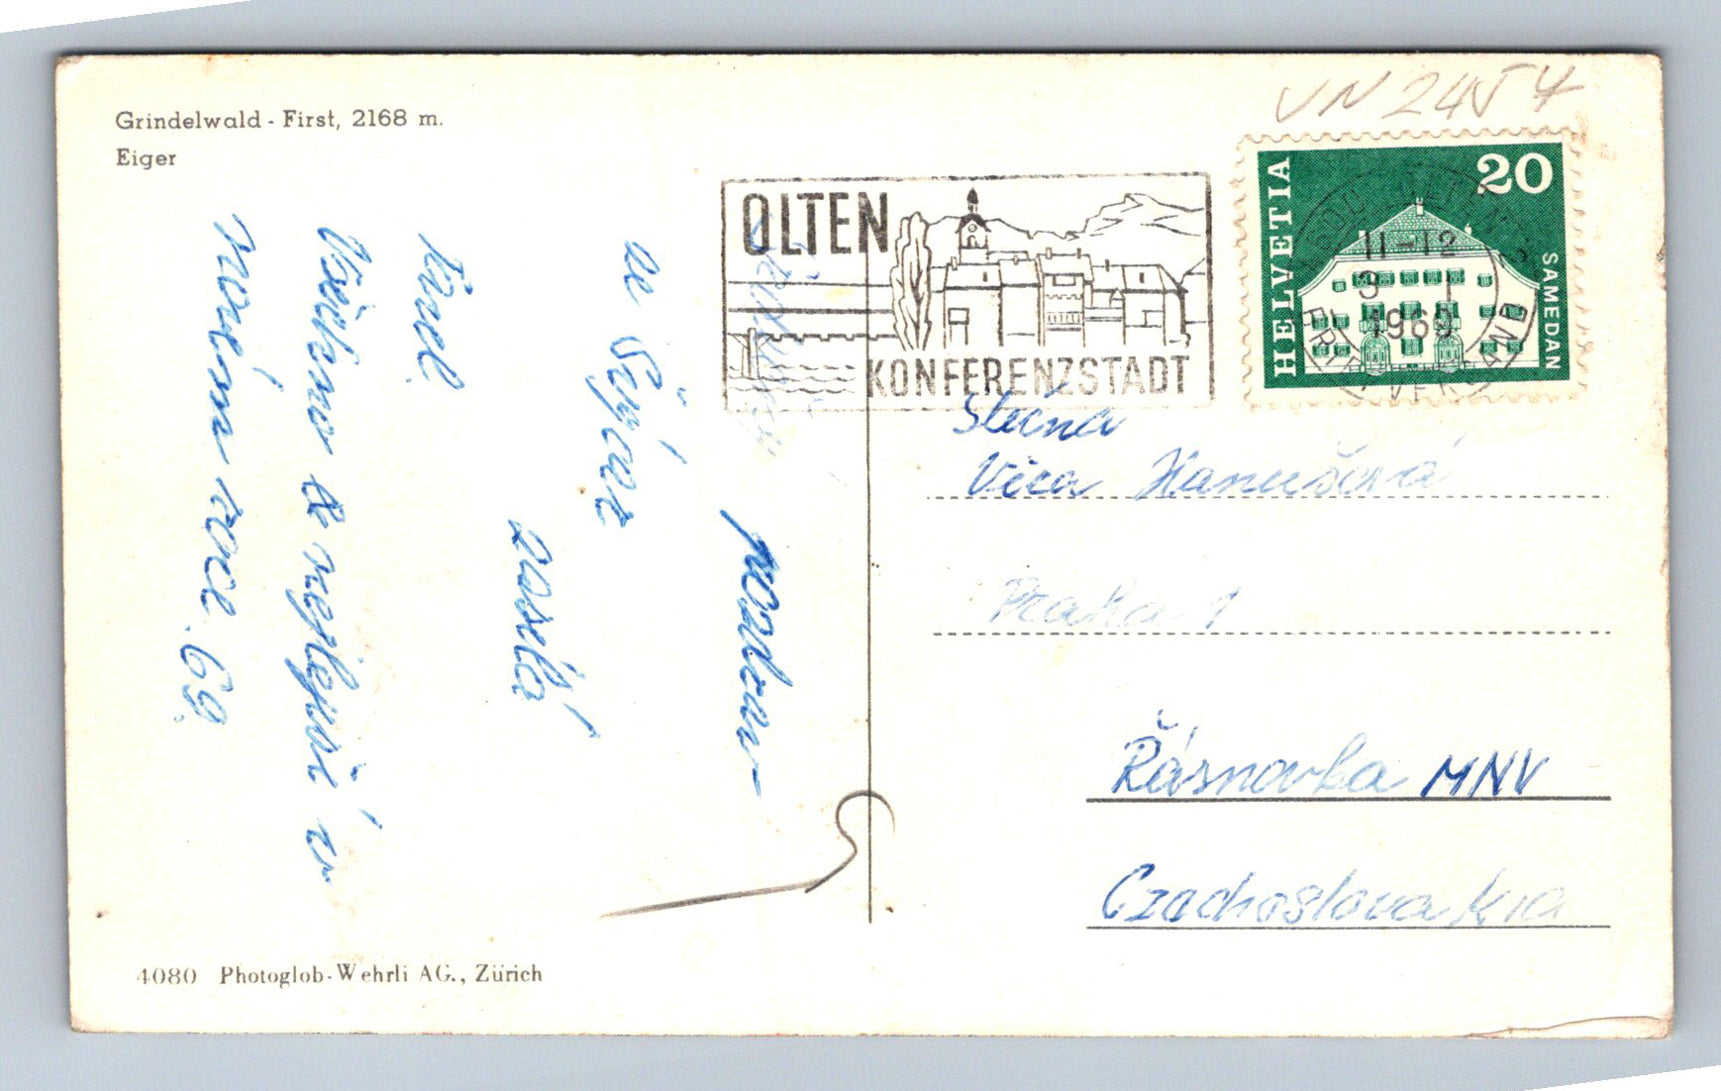 Grindelwald - First, 2168 m.
Eiger
VN 2454
OLTEN
KONFERENZSTADT
HELVETIA
20
SAMEDAN
4600 OLTEN 1
11-12
1969
pozdrav
ze Švýcar
posílá
Karel
Všechno &amp; nejlepší v
novém roce 69.
Slečna
Věra Hanušová
Praha 1
Řásnovka MNV
Czechoslovakia
4080 Photoglob-Wehrli AG., Zürich